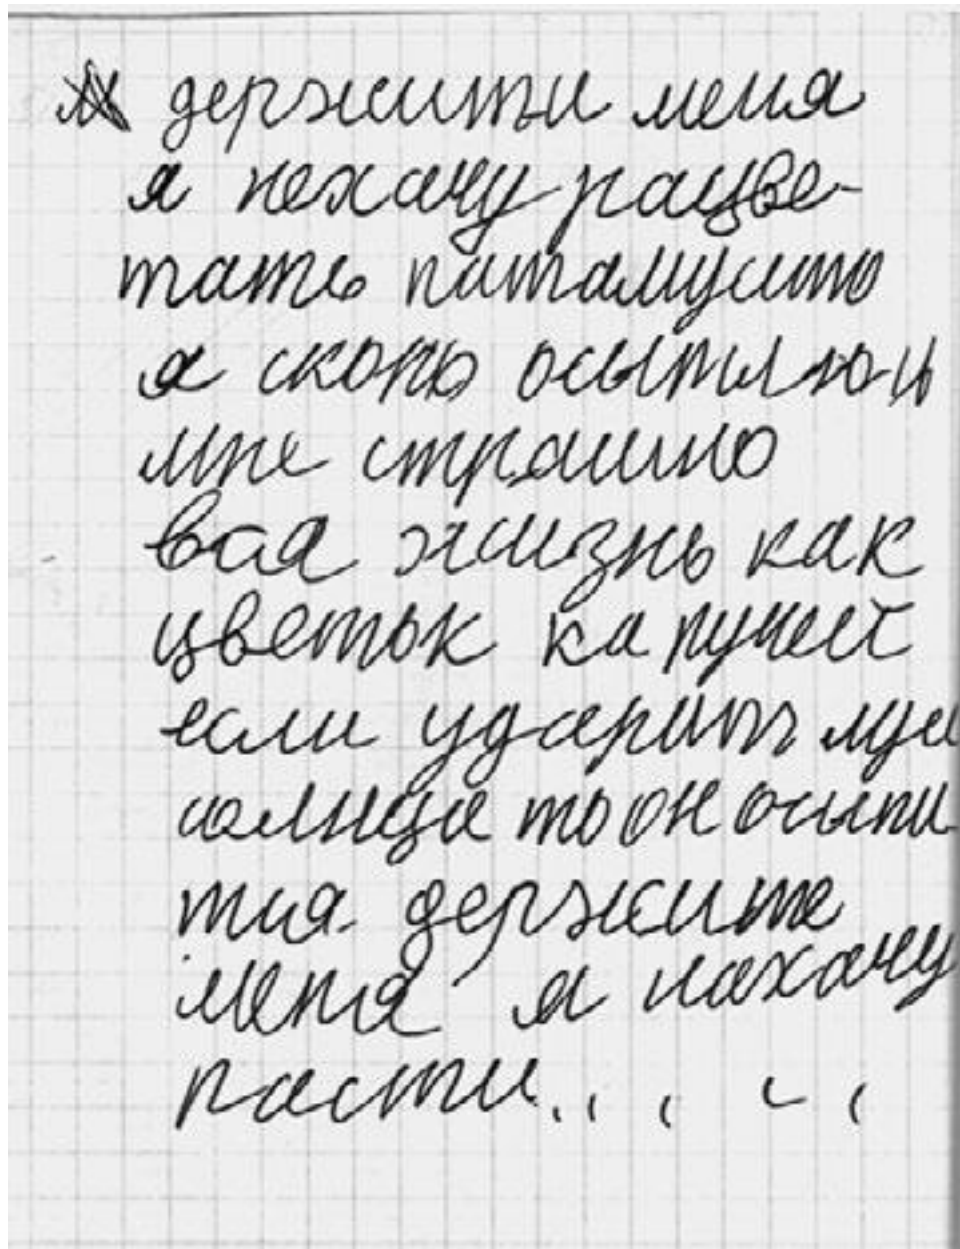 держити меня
я нехачу рацве-
тать патамушто
я скоро осыплюсь
мне страшно
вся жизнь как
цветок ка ручей
если ударит луч
солнца то он осыпи
тся держите
меня я нехачу
расти.....